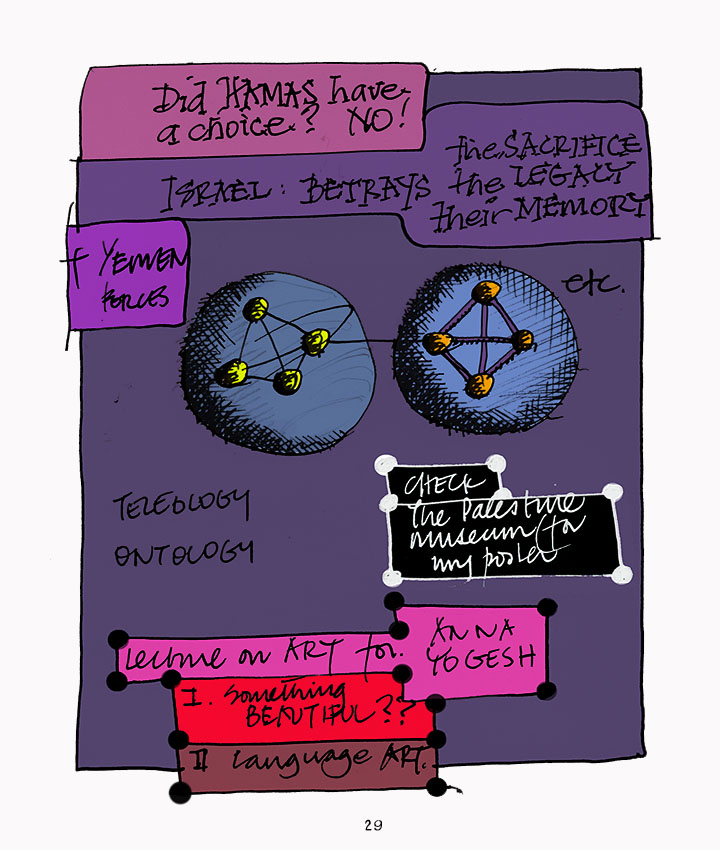 Did HAMAS have
a choice? NO!
ISRAEL: BETRAYS
the SACRIFICE
the LEGACY
their MEMORY
+ YEMEN
FORCES
etc.
TELEOLOGY
ONTOLOGY
CHECK
The Palestine
museum for
my poster
Lecture on ART for:
ANNA
YOGESH
I. Something
BEAUTIFUL??
II Language ART.
29